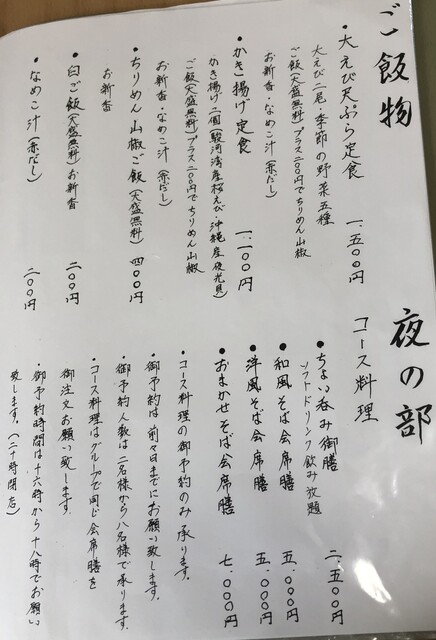 ご飯物
・大えび天ぷら定食 一、五〇〇円
大えび二尾・季節の野菜五種
ご飯(大盛無料)プラス二〇〇円でちりめん山椒
お新香・なめこ汁(赤だし)
・かき揚げ定食 一、一〇〇円
かき揚げ二個(駿河湾産桜えび・沖縄産夜光貝)
ご飯(大盛無料)プラス二〇〇円でちりめん山椒
お新香・なめこ汁(赤だし)
・ちりめん山椒ご飯(大盛無料) 四〇〇円
お新香
・白ご飯(大盛無料)お新香 二〇〇円
・なめこ汁(赤だし) 二〇〇円
夜の部
コース料理
・ちょい呑み御膳 二、五〇〇円
ソフトドリンク飲み放題
・和風そば会席膳 五、〇〇〇円
・洋風そば会席膳 五、〇〇〇円
・おまかせそば会席膳 七、〇〇〇円
・コース料理の御予約のみ承ります。
・御予約は前々日までにお願い致します。
・御予約人数は二名様から八名様で承ります。
・コース料理はグループで同じ会席膳を
御注文お願い致します。
・御予約時間は十六時から十八時でお願い
致します。(二十時閉店)